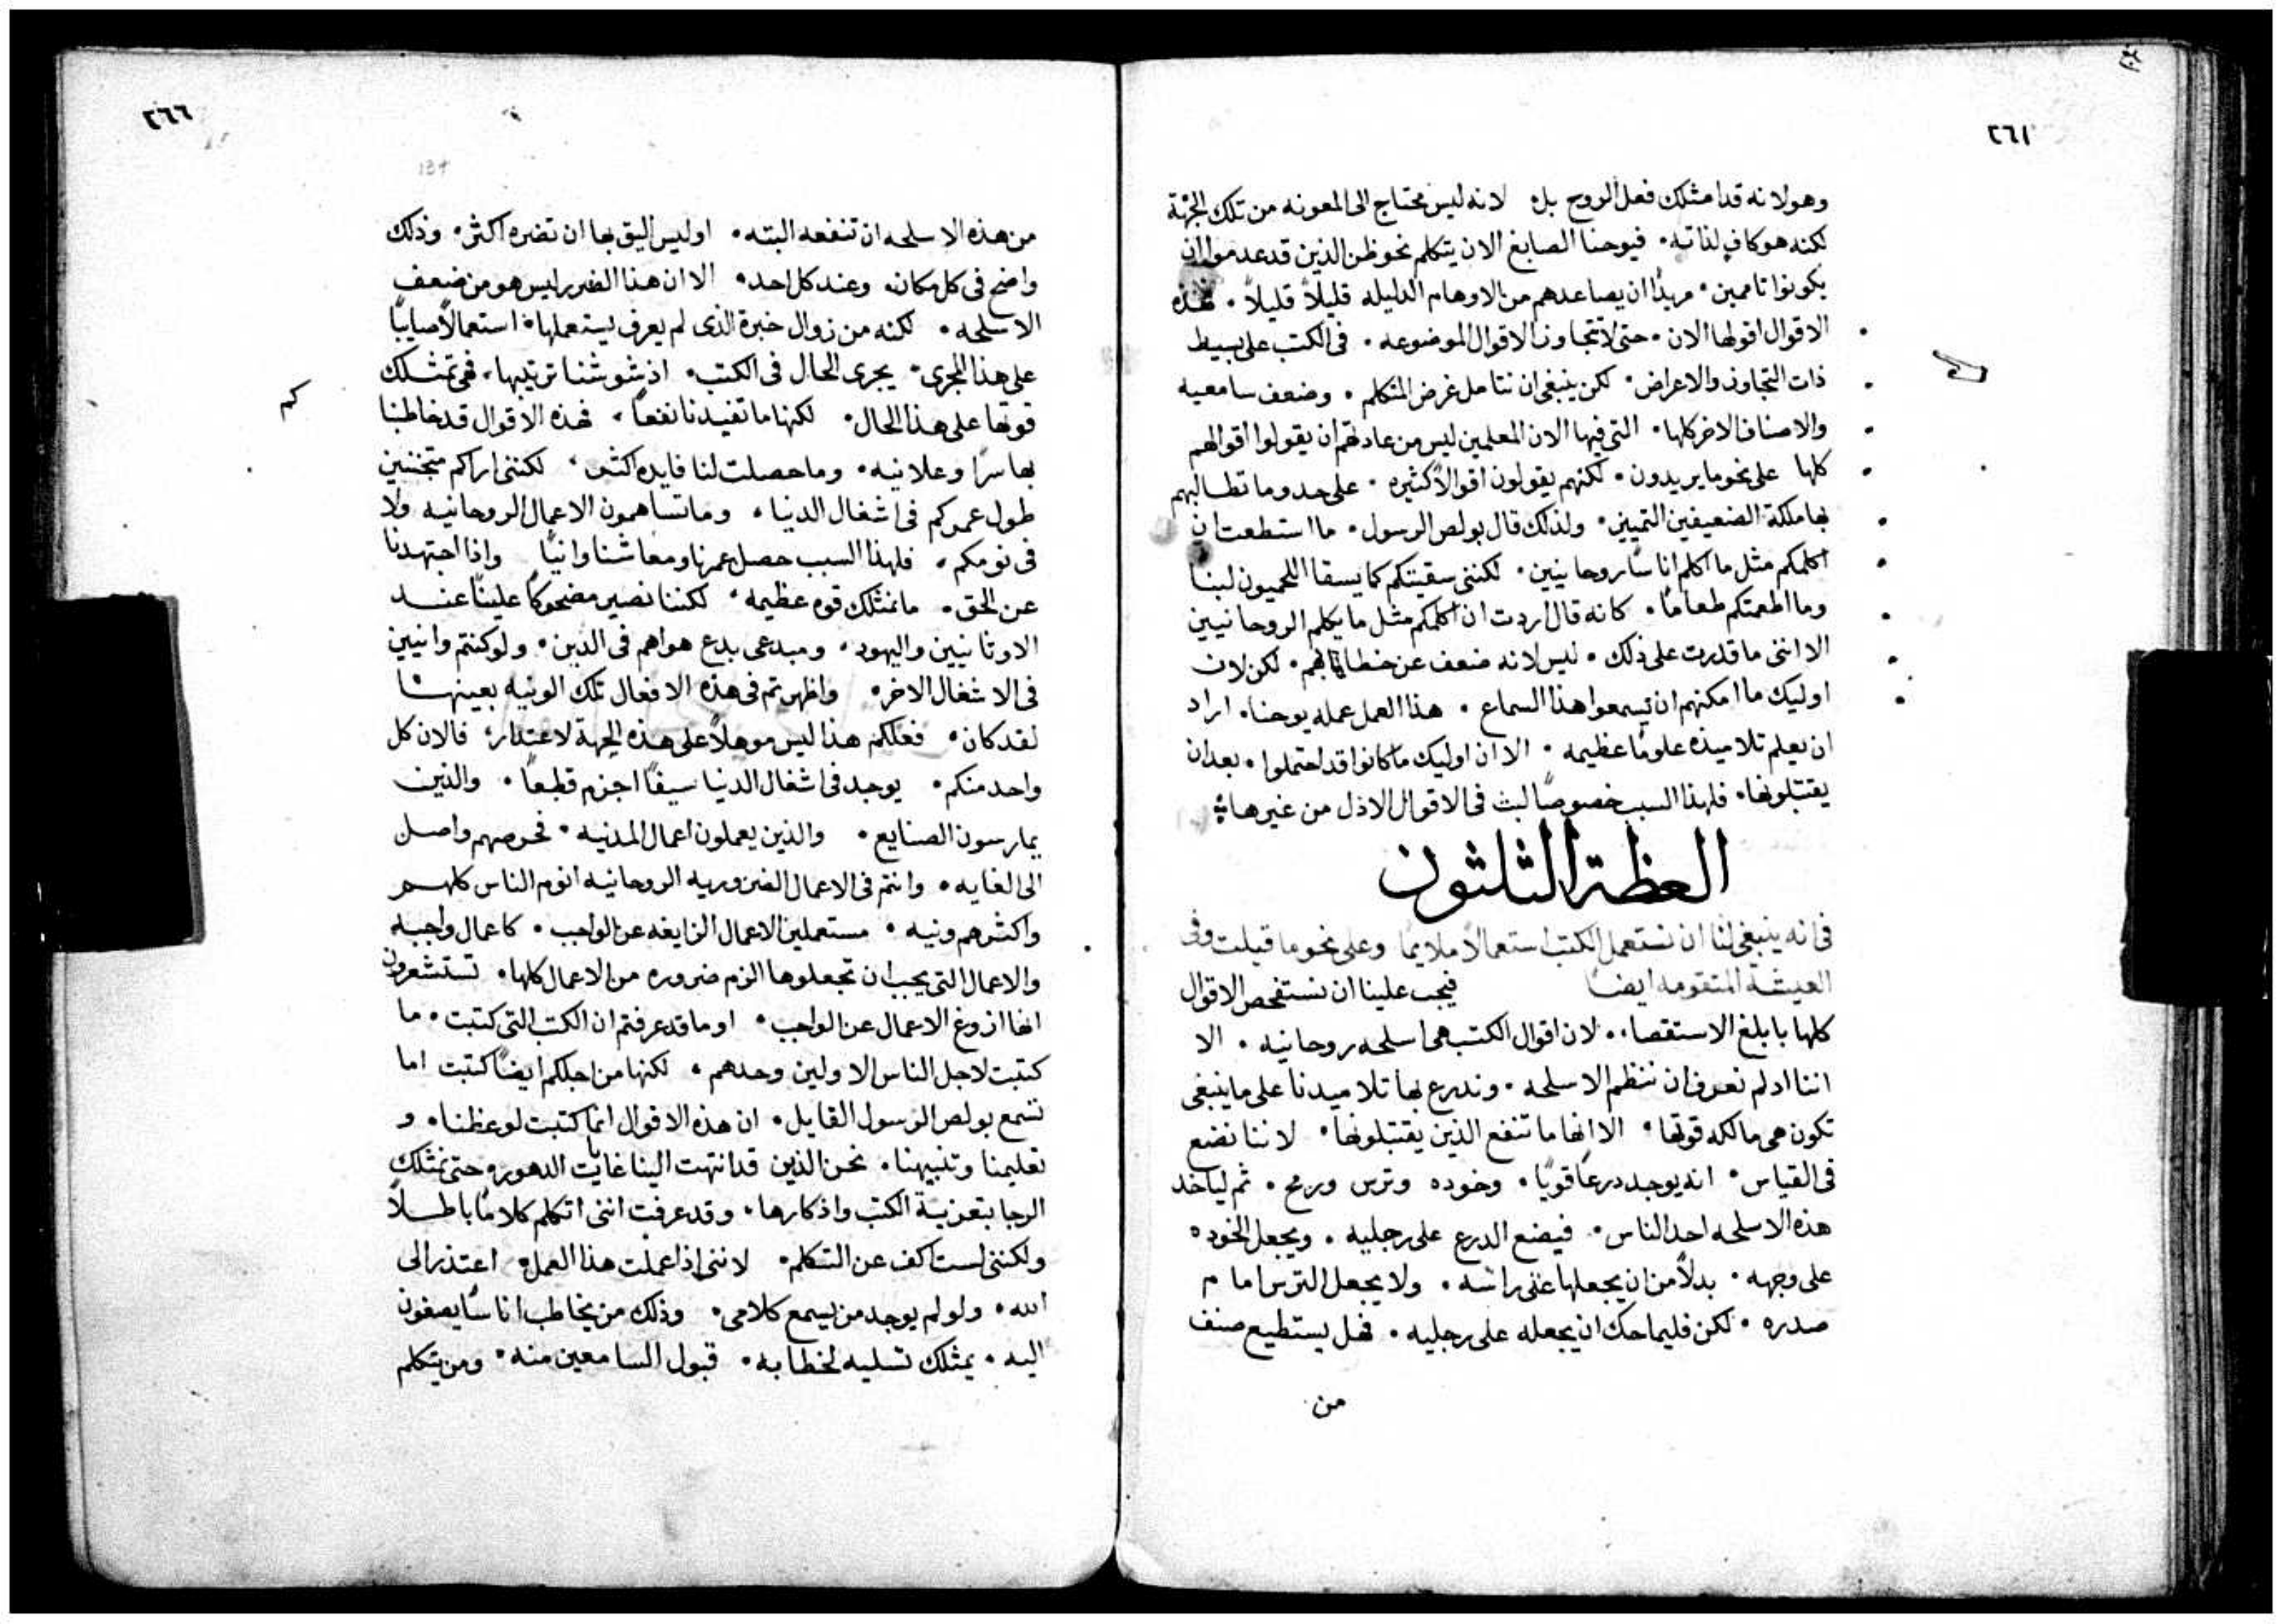 ٢٦١
وهو لانه قد امتلك فعل الروح بل لانه ليس محتاج الى المعونه من تلك الجهة
لكنه هو كافٍ لذاته٠ فيوحنا الصابغ الان يتكلم نحو ظن الذين قد عدموا ان
يكونوا تاممين٠ مريدًا ان يصاعدهم من الاوهام الدليله قليلاً قليلاً ٠ فهذه
الاقوال اقولها الان ٠ حتى لا نتجاوز الاقوال الموضوعه ٠ فى الكتب على بسيط
ذات التجاوز والاعراض٠ لكن ينبغى ان نتامل غرض المتكلم ٠ وضعف سامعيه
والاصناف الاخر كلها٠ التى فيها الان المعلمين ليس من عادتهم ان يقولوا اقوالهم
كلها على نحو ما يريدون ٠ لكنهم يقولون اقوالاً كثيره ٠ على حدو ما تطالبهم
بها ملكة الضعيفين التمييز٠ ولذلك قال بولص الرسول٠ ما استطعت ان
اكلمكم مثل ما اكلم اناسًا روحانيين٠ لكننى سقيتكم كما يسقا اللحميون لبنا
وما اطعمتكم طعامًا٠ كانه قال اردت ان اكلمكم مثل ما يكلم الروحانيين
الا اننى ما قدرت على ذلك ٠ ليس لانه ضعف عن خطابهم٠ لكن لان
اوليك ما امكنهم ان يسمعوا هذا السماع ٠ هذا العمل عمله يوحنا٠ اراد
ان يعلم تلاميذه علومًا عظيمه ٠ الا ان اوليك ما كانوا قد احتملوا ٠ بعد ان
يقتبلونها٠ فلهذا السبب خصوصًا لبث فى الاقوال الاذل من غيرها
العظة الثلثون
فى انه ينبغى لنا ان نستعمل الكتب استعمالاً ملايمًا وعلى نحو ما قيلت وفى
العيشة المتقومه ايضًا فيجب علينا ان نستفحص الاقوال
كلها بابلغ الاستقصا٠٠ لان اقوال الكتب هى اسلحه روحانيه ٠ الا
اننا اد لم نعرف ان ننظم الاسلحه ٠ وندرع بها تلاميدنا على ما ينبغى
تكون هى مالكه قوتها ٠ الا انها ما تنفع الذين يقتبلونها٠ لاننا نضع
فى القياس٠ انه يوجد درعًا قويًا٠ وخوده وترس ورمح ٠ ثم لياخد
هذه الاسلحه احد الناس٠ فيضع الدرع على رجليه ٠ ويجعل الخوده
على وجهه ٠ بدلاً من ان يجعلها على راسه ٠ ولا يجعل الترس امام
صدره ٠ لكن فليماحك ان يجعله على رجليه ٠ فهل يستطيع صنف
من
٢٦٦
134
من هذه الاسلحه ان تنفعه البته٠ اوليس اليق بها ان تضره اكثر٠ وذلك
واضح فى كل مكان٠ وعند كل احد٠ الا ان هذا الضرر ليس هو من ضعف
الاسلحه ٠ لكنه من زوال خبرة الذى لم يعرف يستعملها٠ استعمالاً صايبًا
على هذا المجرى٠ يجرى الحال فى الكتب٠ اذ شوشنا ترتيبها٠ فهى تمتلك
كم
قوتها على هذا الحال٠ لكنها ما تفيدنا نفعًا ٠ فهذه الاقوال قد خاطبنا
بها سرًا وعلانيه٠ وما حصلت لنا فايده اكثر٠ لكننى اراكم متجننين
طول عمركم فى اشغال الدنيا٠ وما تساهمون الاعمال الروحانيه ولا
فى نومكم٠ فلهذا السبب حصل عمرنا ومعاشنا وانيًا واذا اجتهدنا
عن الحق٠ ما نمتلك قوه عظيمه٠ لكننا نصير مضحوكًا علينا عند
الاوثانيين واليهود٠ ومبدعى بدع هواهم فى الدين٠ ولو كنتم وانيين
فى الاشغال الاخر٠ واظهرتم فى هذه الافعال تلك الونيه بعينها
لقد كان٠ فعلكم هذا ليس موهلاً على هذه الجهة لاعتذار٠ فالان كل
واحد منكم٠ يوجد فى اشغال الدنيا سيفًا اجزم قطعًا٠ والذين
يمارسون الصنايع٠ والذين يعملون اعمال المدنيه٠ فحوصهم واصل
الى الغايه٠ وانتم فى الاعمال الضروريه الروحانيه انوم الناس كلهم
واكثرهم ونيه ٠ مستعملين الاعمال الزايغه عن الواجب٠ كاعمال واجبه
والاعمال التى يجب ان تجعلوها الزم ضروره من الاعمال كلها٠ تستشعرون
انها ازوغ الاعمال عن الواجب٠ اوما قد عرفتم ان الكتب التى كتبت٠ ما
كتبت لاجل الناس الاولين وحدهم ٠ لكنها من اجلكم ايضًا كتبت اما
تسمع بولص الرسول القايل٠ ان هذه الاقوال انما كتبت لوعظنا٠ و
تعليمنا وتنبيهنا٠ نحن الذين قد انتهت الينا غايات الدهور٠ حتى نمتلك
الرجا بتعزية الكتب واذكارها٠ وقد عرفت اننى اتكلم كلامًا باطلاً
ولكننى لست اكف عن التكلم٠ لاننى اذا عملت هذا العمل٠ اعتذر الى
الله٠ ولو لم يوجد من يسمع كلامى٠ وذلك من يخاطب اناسًا يصغون
اليه ٠ يمتلك تسليه لخطابه٠ قبول السامعين منه٠ ومن يتكلم